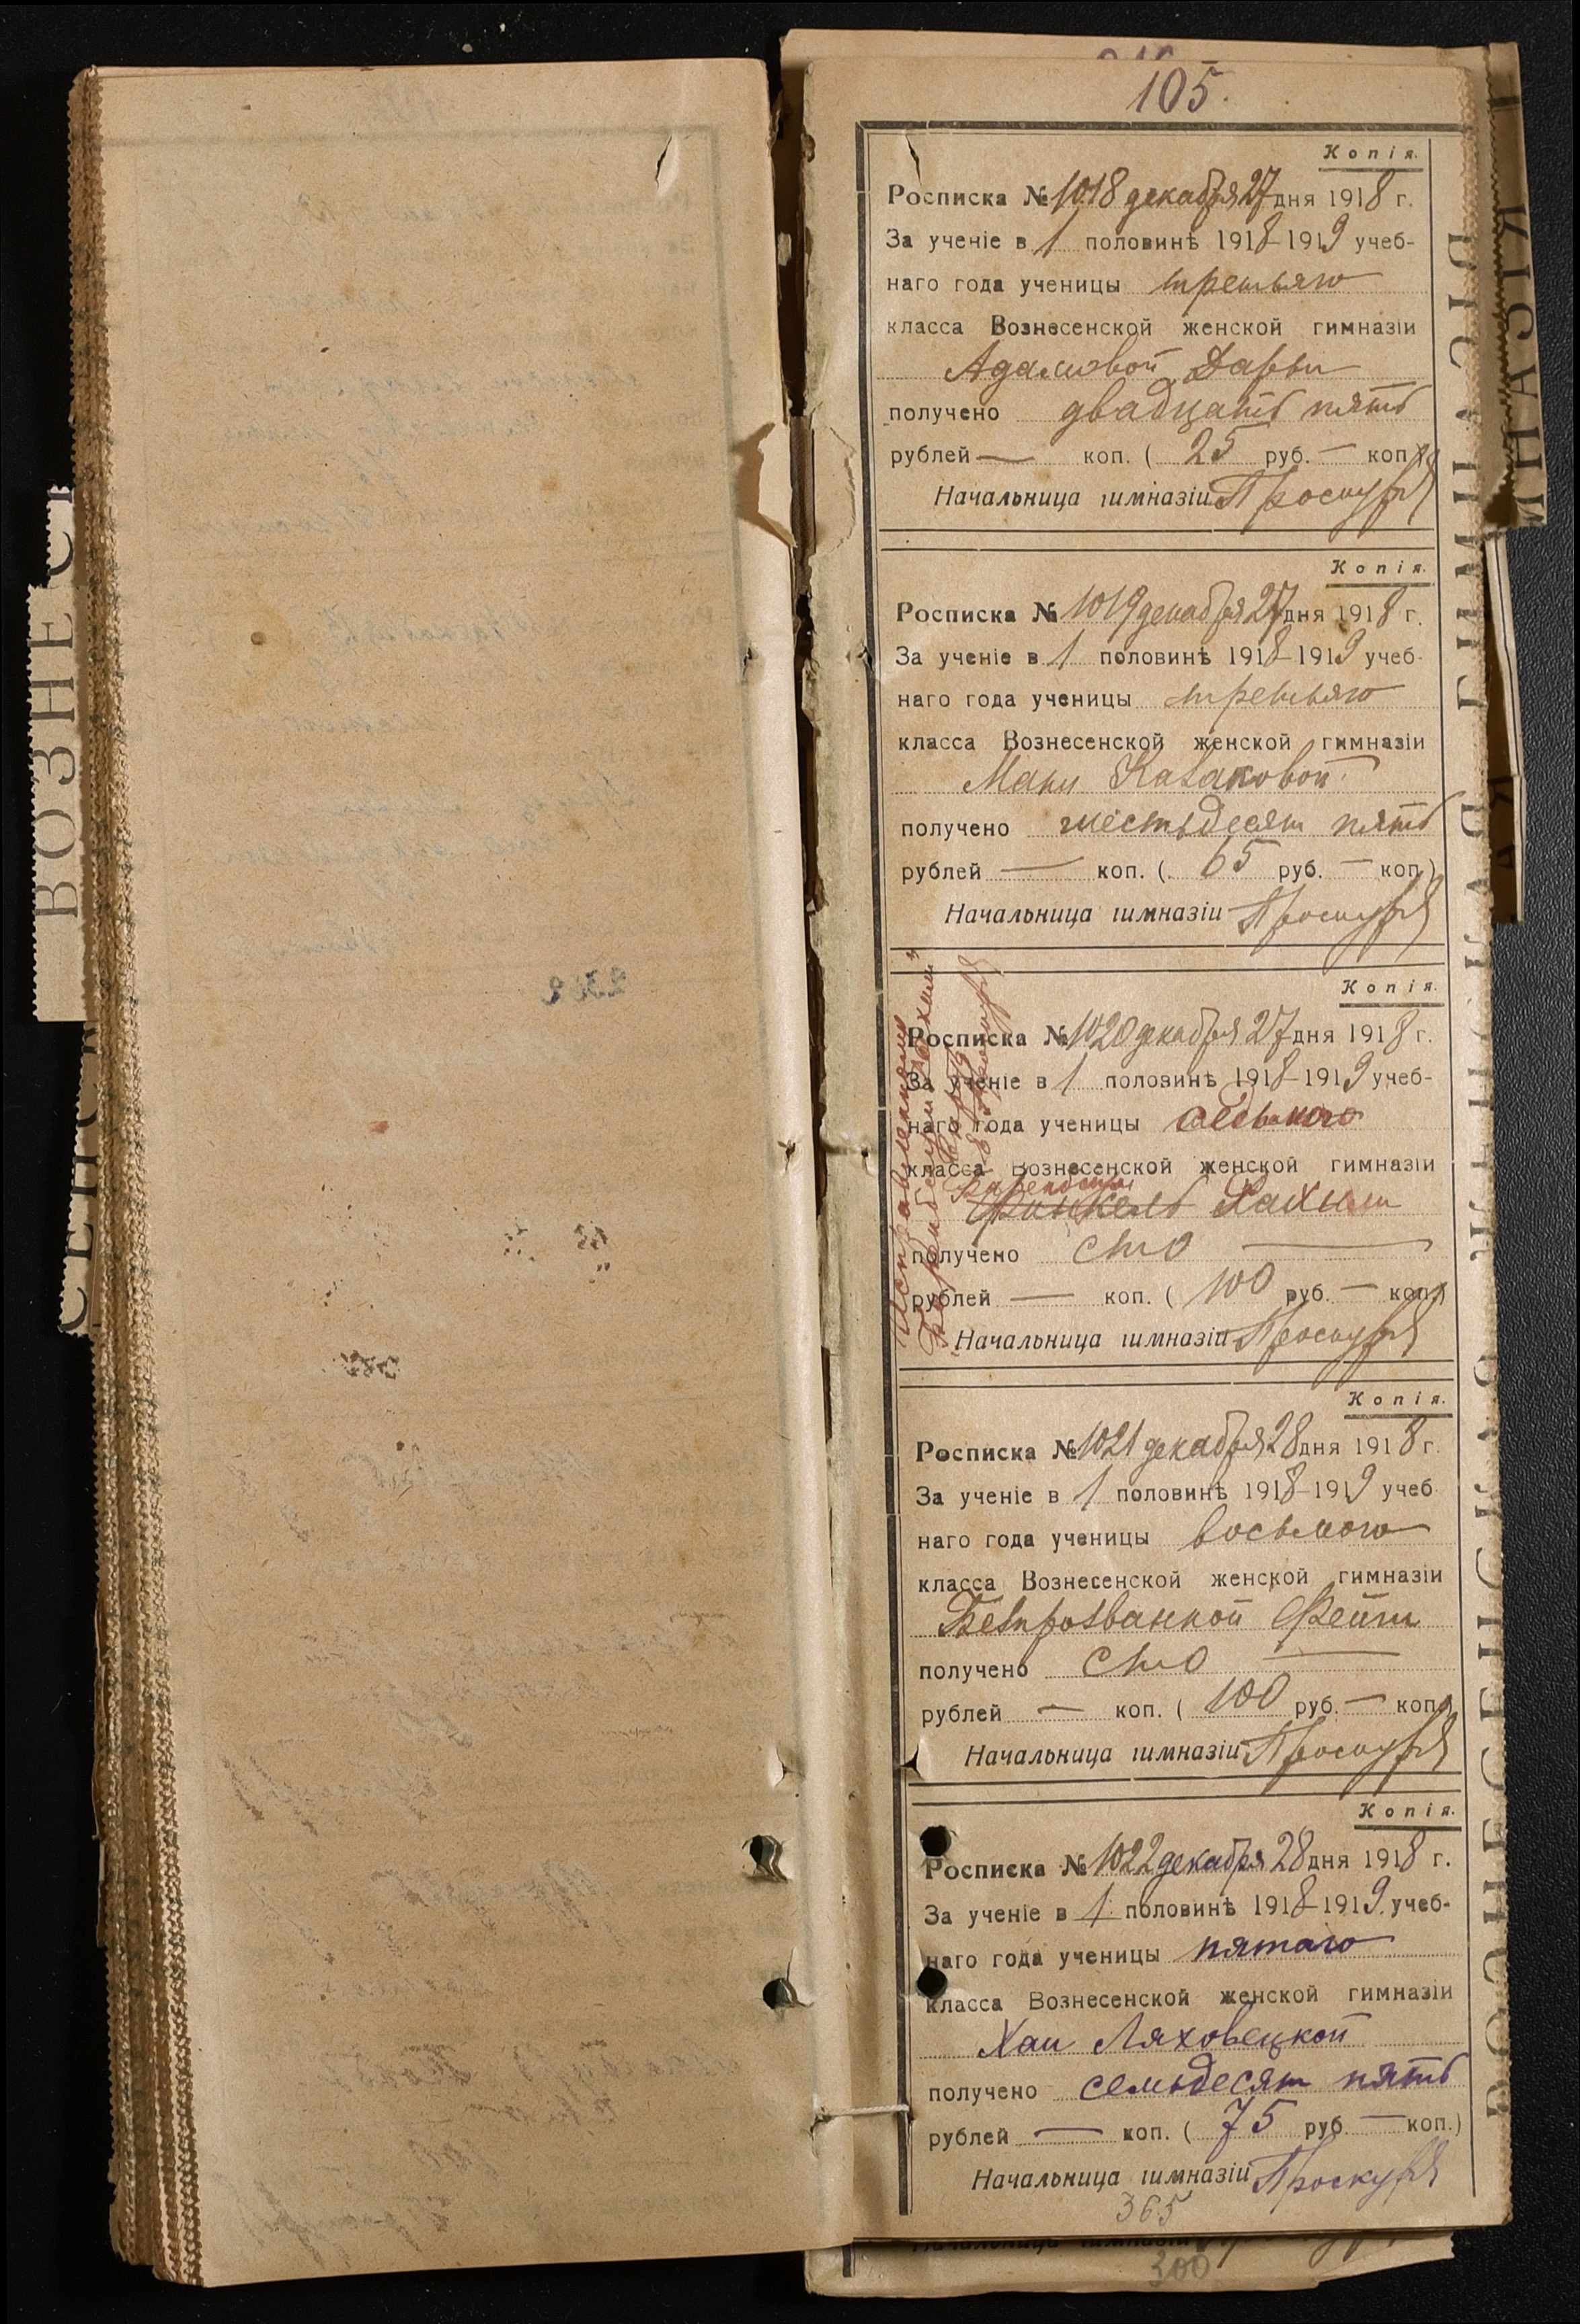 105.
Копія.
Росписка № 1018 декабря 27 дня 1918 г.
За ученіе в 1 половинѣ 1918-1919 учеб-
наго года ученицы третьяго
класса Вознесенской женской гимназіи
Адамовой Дарьи
получено двадцать пять
рублей — коп. ( 25 руб. — коп.)
Начальница гимназіи Проскура
Копія.
Росписка № 1019 декабря 27 дня 1918 г.
За ученіе в 1 половинѣ 1918-1919 учеб-
наго года ученицы третьяго
класса Вознесенской женской гимназіи
Мани Казаковой
получено шестьдесят пять
рублей — коп. ( 65 руб. — коп.)
Начальница гимназіи Проскура
Копія.
Росписка № 1020 декабря 27 дня 1918 г.
За ученіе в 1 половинѣ 1918-1919 учеб-
наго года ученицы седьмого
класса Вознесенской женской гимназіи
Финкель Рахили
получено сто —
рублей — коп. ( 100 руб. — коп.)
Начальница гимназіи Проскура
Исправленному
Копія.
Росписка № 1021 декабря 28 дня 1918 г.
За ученіе в 1 половинѣ 1918-1919 учеб
наго года ученицы восьмого
класса Вознесенской женской гимназіи
Безпрозванной Фейги
получено сто —
рублей — коп. ( 100 руб. — коп.)
Начальница гимназіи Проскура
Копія.
Росписка № 1022 декабря 28 дня 1918 г.
За ученіе в 1 половинѣ 1918-1919 учеб-
наго года ученицы пятаго
класса Вознесенской женской гимназіи
Хаи Ляховецкой
получено семьдесят пять
рублей — коп. ( 75 руб. — коп.)
Начальница гимназіи Проскура
365
300
ВОЗНЕС
СЕНСК